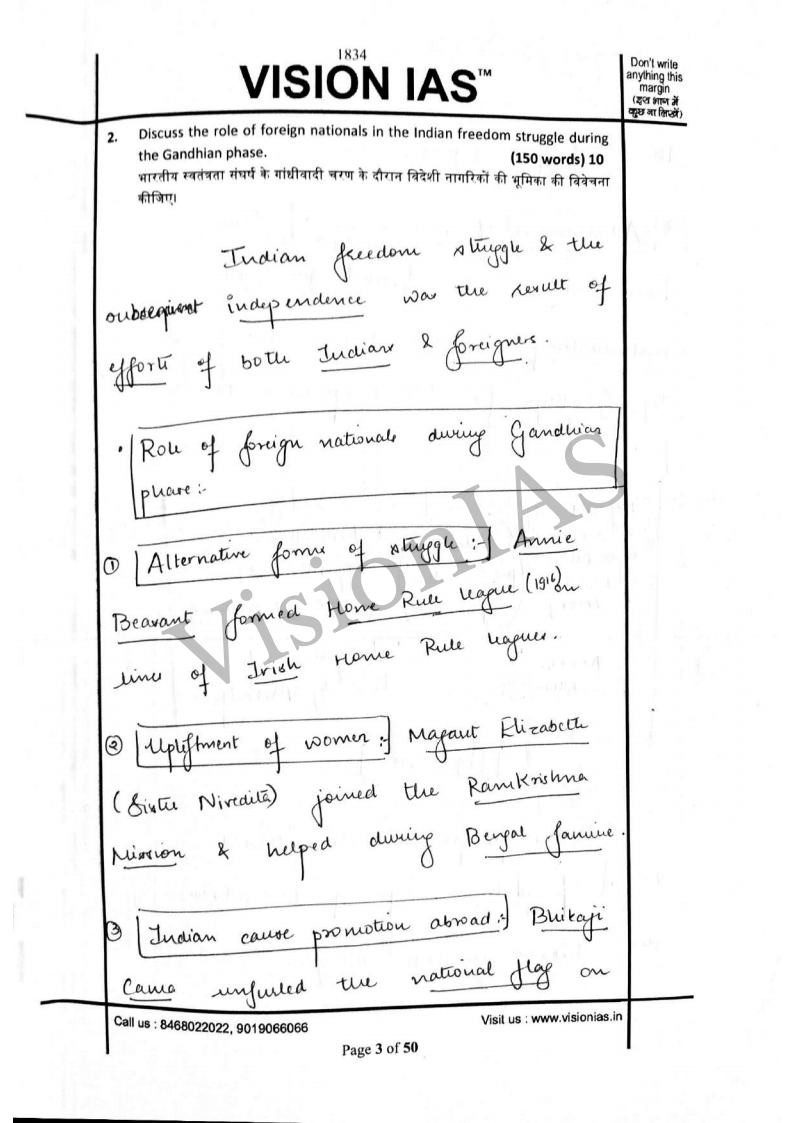 1834
VISION IAS™
Don't write
anything this
margin
(इस भाग में
कुछ ना लिखें)
2. Discuss the role of foreign nationals in the Indian freedom struggle during
the Gandhian phase. (150 words) 10
भारतीय स्वतंत्रता संघर्ष के गांधीवादी चरण के दौरान विदेशी नागरिकों की भूमिका की विवेचना
कीजिए।
Indian freedom struggle & the
subsequent independence was the result of
efforts of both Indians & foreigners.
• Role of foreign nationals during Gandhian
phase :-
① Alternative forms of struggle :- Annie
Beasant formed Home Rule league (1916) on
lines of Irish Home Rule leagues.
② Upliftment of women :- Magaut Elizabeth
(Sister Nivedita) joined the RamKrishna
Mission & helped during Bengal famine.
③ Indian cause promotion abroad :- Bhikaji
Cama unfurled the national flag on
VisionIAS
Call us : 8468022022, 9019066066
Visit us : www.visionias.in
Page 3 of 50